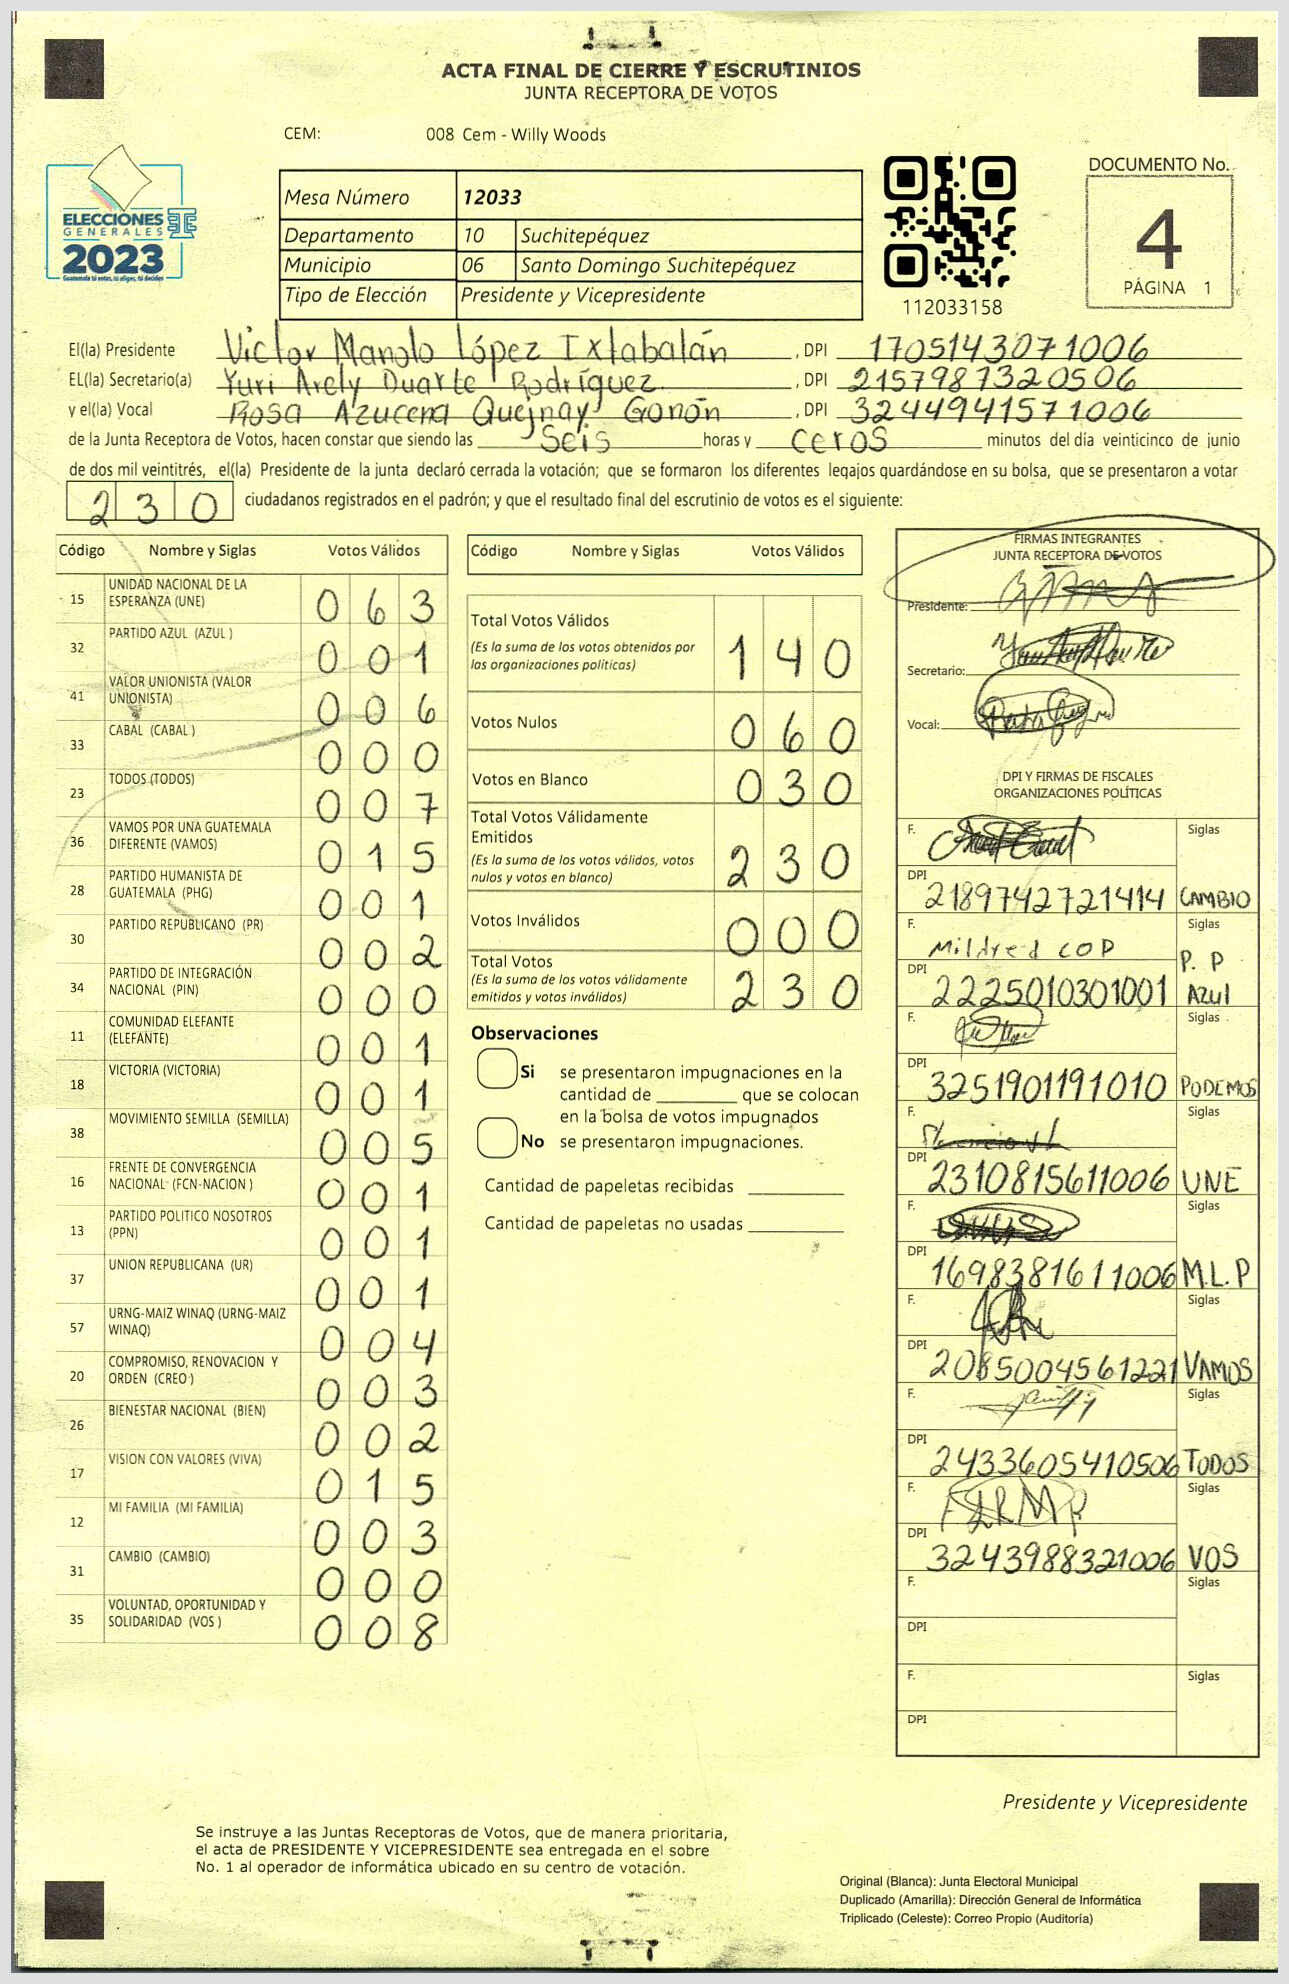 ACTA FINAL DE CIERRE Y ESCRUTINIOS
JUNTA RECEPTORA DE VOTOS
CEM: 008 Cem - Willy Woods
ELECCIONES
GENERALES
2023
Guatemala tú votas, tú eliges, tú decides
Mesa Número 12033
Departamento 10 Suchitepéquez
Municipio 06 Santo Domingo Suchitepéquez
Tipo de Elección Presidente y Vicepresidente
112033158
DOCUMENTO No.
4
PÁGINA 1
El(la) Presidente Victor Manolo López Ixtabalán, DPI 1705143071006
EL(la) Secretario(a) Yuri Arely Duarte Rodríguez, DPI 2157987320506
y el(la) Vocal Rosa Azucena Quejnay Gonón, DPI 3244941571006
de la Junta Receptora de Votos, hacen constar que siendo las Seis horas y ceros minutos del día veinticinco de junio
de dos mil veintitrés, el(la) Presidente de la junta declaró cerrada la votación; que se formaron los diferentes legajos quardándose en su bolsa, que se presentaron a votar
230 ciudadanos registrados en el padrón; y que el resultado final del escrutinio de votos es el siguiente:
Código Nombre y Siglas Votos Válidos
15 UNIDAD NACIONAL DE LA ESPERANZA (UNE) 063
32 PARTIDO AZUL (AZUL ) 001
41 VALOR UNIONISTA (VALOR UNIONISTA) 006
33 CABAL (CABAL ) 000
23 TODOS (TODOS) 007
36 VAMOS POR UNA GUATEMALA DIFERENTE (VAMOS) 015
28 PARTIDO HUMANISTA DE GUATEMALA (PHG) 001
30 PARTIDO REPUBLICANO (PR) 002
34 PARTIDO DE INTEGRACIÓN NACIONAL (PIN) 000
11 COMUNIDAD ELEFANTE (ELEFANTE) 001
18 VICTORIA (VICTORIA) 001
38 MOVIMIENTO SEMILLA (SEMILLA) 005
16 FRENTE DE CONVERGENCIA NACIONAL (FCN-NACION ) 001
13 PARTIDO POLITICO NOSOTROS (PPN) 001
37 UNION REPUBLICANA (UR) 001
57 URNG-MAIZ WINAQ (URNG-MAIZ WINAQ) 004
20 COMPROMISO, RENOVACION Y ORDEN (CREO ) 003
26 BIENESTAR NACIONAL (BIEN) 002
17 VISION CON VALORES (VIVA) 015
12 MI FAMILIA (MI FAMILIA) 003
31 CAMBIO (CAMBIO) 000
35 VOLUNTAD, OPORTUNIDAD Y SOLIDARIDAD (VOS ) 008
Código Nombre y Siglas Votos Válidos
Total Votos Válidos 140
(Es la suma de los votos obtenidos por
las organizaciones politicas)
Votos Nulos 060
Votos en Blanco 030
Total Votos Válidamente
Emitidos 230
(Es la suma de los votos válidos, votos
nulos y votos en blanco)
Votos Inválidos 000
Total Votos 230
(Es la suma de los votos válidamente
emitidos y votos inválidos)
Observaciones
Si se presentaron impugnaciones en la
cantidad de ________ que se colocan
en la bolsa de votos impugnados
No se presentaron impugnaciones.
Cantidad de papeletas recibidas
Cantidad de papeletas no usadas
FIRMAS INTEGRANTES
JUNTA RECEPTORA DE VOTOS
Presidente:
Secretario:
Vocal:
DPI Y FIRMAS DE FISCALES
ORGANIZACIONES POLÍTICAS
F. Siglas
DPI 2189742721414 CAMBIO
F. Mildred COP Siglas
DPI 2225010301001 P. P AZUL
F. Siglas
DPI 3251901191010 PODEMOS
F. Siglas
DPI 2310815611006 UNE
F. Siglas
DPI 1698381611006 M.L.P
F. Siglas
DPI 2085004561221 VAMOS
F. Siglas
DPI 2433605410506 TODOS
F. Siglas
DPI 3243988321006 VOS
F. Siglas
DPI
F. Siglas
DPI
Presidente y Vicepresidente
Se instruye a las Juntas Receptoras de Votos, que de manera prioritaria,
el acta de PRESIDENTE Y VICEPRESIDENTE sea entregada en el sobre
No. 1 al operador de informática ubicado en su centro de votación.
Original (Blanca): Junta Electoral Municipal
Duplicado (Amarilla): Dirección General de Informática
Triplicado (Celeste): Correo Propio (Auditoría)